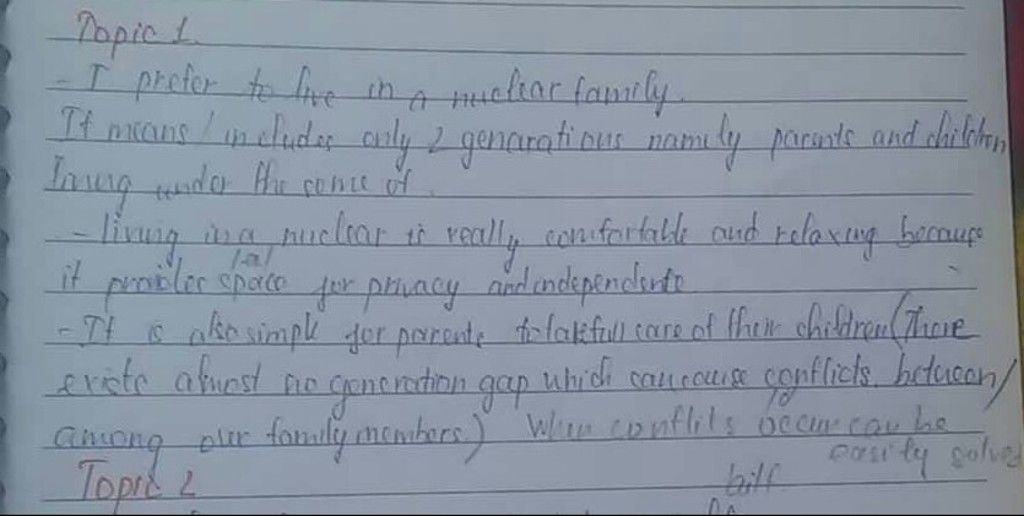 Topic 1.
- I prefer to live in a nuclear family.
It means / includes only 2 genarations namely parents and children
living under the same of.
- living in a nuclear is really comfortable and relaxing because
it provides space for privacy and independents
/a/
- It is also simple for parents to take full care of their children (There
exists almost no generation gap which can cause conflicts between /
among our family members.) When conflits occur can be
easily solved
Topic 2